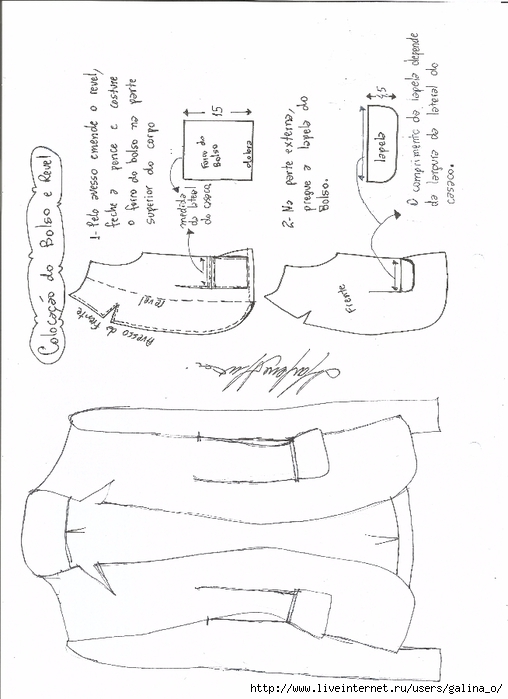 Colocação do Bolso e Revel
1- Pelo avesso emende o revel,
feche a pence e costure
o forro do bolso na parte
superior do corpo
15
Forro do
Bolso
dobra
medida
da lateral
do casaco
Avesso da
Frente
revel
2- Na parte externa,
pregue a lapela do
Bolso.
4,5
lapela
O comprimento da lapela depende
da largura da lateral do
casaco.
Frente
http://www.liveinternet.ru/users/galina_o/